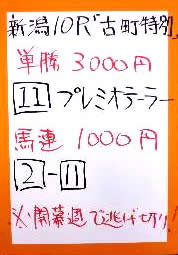 新潟10R「古町特別」
単勝 3000円
11 プレミオテーラー
馬連 1000円
2-11
※開幕週で逃げ切り!